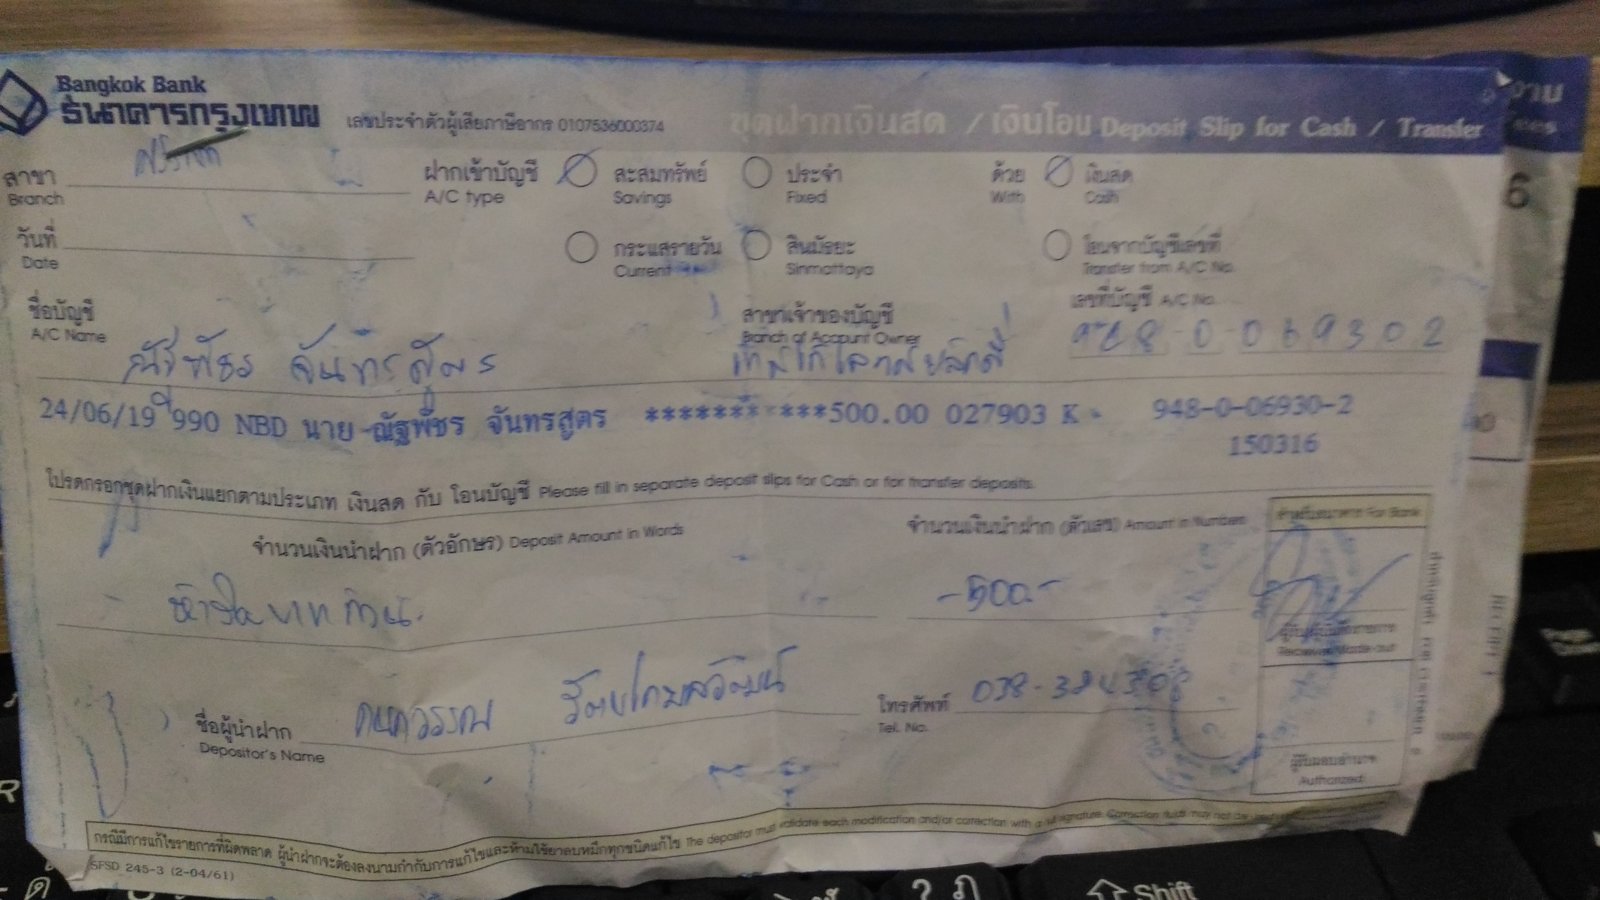 Bangkok Bank
ธนาคารกรุงเทพ เลขประจำตัวผู้เสียภาษีอากร 0107536000374 ชุดฝากเงินสด / เงินโอน Deposit Slip for Cash / Transfer
สาขา ฝากเข้าบัญชี สะสมทรัพย์ ประจำ ด้วย เงินสด
Branch A/C type Savings Fixed With Cash
วันที่ กระแสรายวัน สินมัธยะ โอนจากบัญชีเลขที่
Date Current Sinmattaya Transfer from A/C No.
ชื่อบัญชี สาขาเจ้าของบัญชี เลขที่บัญชี A/C No.
A/C Name Branch of Account Owner
ณัฐพัชร จันทรสูตร
24/06/19 990 NBD นาย ณัฐพัชร จันทรสูตร **********500.00 027903 K 948-0-06930-2
150316
โปรดกรอกชุดฝากเงินแยกตามประเภท เงินสด กับ โอนบัญชี Please fill in separate deposit slips for Cash or for transfer deposits.
จำนวนเงินนำฝาก (ตัวอักษร) Deposit Amount in Words จำนวนเงินนำฝาก (ตัวเลข) Amount in Numbers สำหรับธนาคาร For Bank
ห้าร้อยบาทถ้วน. -500.-
ชื่อผู้นำฝาก โทรศัพท์
Depositor's Name Tel. No.
ผู้รับมอบอำนาจ
Authorized
กรณีมีการแก้ไขรายการที่ผิดพลาด ผู้นำฝากจะต้องลงนามกำกับการแก้ไขและห้ามใช้ยาลบหมึกทุกชนิดแก้ไข The depositor must validate each modification and/or correction with a full signature. Correction fluids may not be used
SFSD 245-3 (2-04/61)
Shift